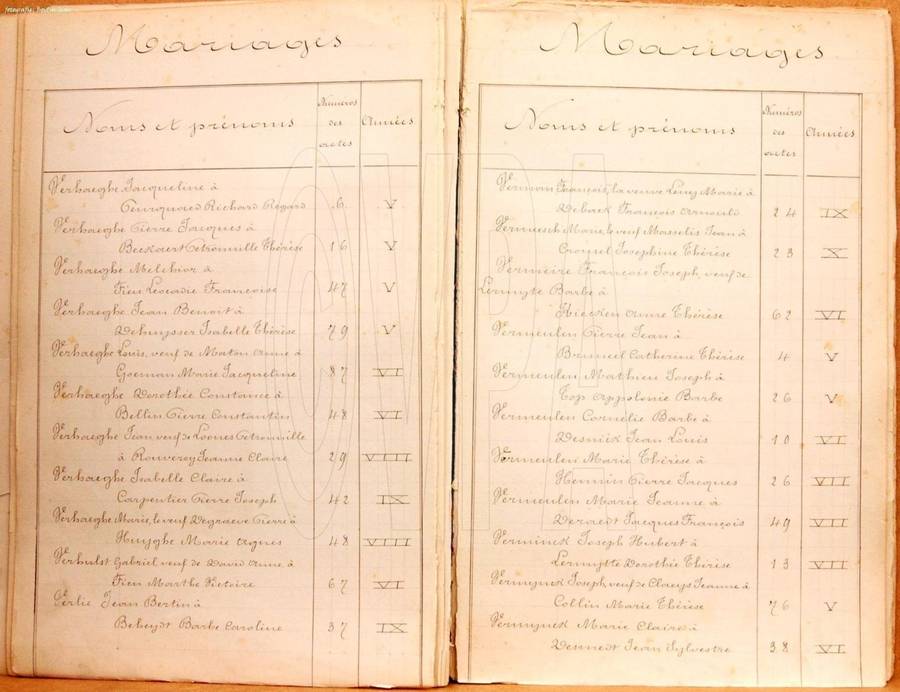 Mariages
Noms et prénoms
Numéros des actes
Années
Verhaeghe Jacqueline à
Richard Regard 6 V
Verhaeghe Pierre Jacques à
Beekaert Petronille Thérèse 16 V
Verhaeghe Melchior à
Fieu Leocadie Françoise 47 V
Verhaeghe Jean Benoit à
Dehuysser Isabelle Thérèse 79 V
Verhaeghe Louis, veuf de Maton Anne à
Goeman Marie Jacqueline 87 VI
Verhaeghe Dorothée Constance à
Bellin Pierre Constantin 48 VI
Verhaeghe Jean veuf de Loones Petronille
à Rouveroy Jeanne Claire 29 VIII
Verhaeghe Isabelle Claire à
Carpentier Pierre Joseph 42 IX
Verhaeghe Marie, le veuf Degraeve Pierre à
Huyghe Marie Agnes 48 VIII
Verhulst Gabriel veuf de David Anne à
Fieu Marthe Victoire 67 VI
Verlie Jean Bertin à
Beheydt Barbe Caroline 37 IX
Mariages
Noms et prénoms
Numéros des actes
Années
Verman François, la veuve Marie à
Debaek François Arnould 24 IX
Marie, le veuf Masselis Jean à
Crouel Josephine Thérèse 23 X
Vermeire François Joseph, veuf de
Lermyte Barbe à
Hiecken Anne Thérèse 62 VI
Vermeulen Pierre Jean à
Bruneel Catherine Thérèse 4 V
Vermeulen Mathieu Joseph à
Top Appolonie Barbe 26 V
Vermeulen Cornélie Barbe à
Desnick Jean Louis 10 VI
Vermeulen Marie Thérèse à
Hennin Pierre Jacques 26 VII
Vermeulen Marie Jeanne à
Deraedt Jacques François 49 VII
Verminck Joseph Hubert à
Lermytte Dorothée Thérèse 13 VIII
Vermynck Joseph, veuf de Claeys Jeanne à
Collin Marie Thérèse 76 V
Vermynck Marie Claire à
Desmedt Jean Sylvestre 38 VI